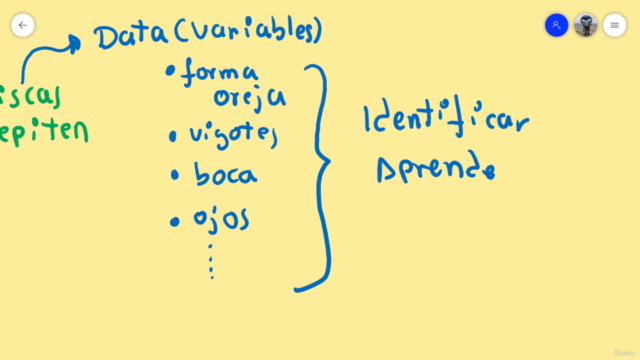 Data(variables)
• forma
oreja
• vigotes
• boca
• ojos
iscas
epiten
Identificar
Aprende